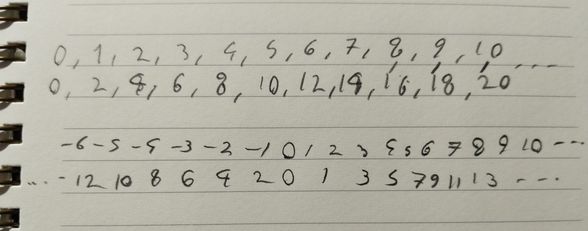 0, 1, 2, 3, 4, 5, 6, 7, 8, 9, 10 ...
0, 2, 4, 6, 8, 10, 12, 14, 16, 18, 20
-6 -5 -4 -3 -2 -1 0 1 2 3 4 5 6 7 8 9 10 ...
... 12 10 8 6 4 2 0 1 3 5 7 9 11 13 ...